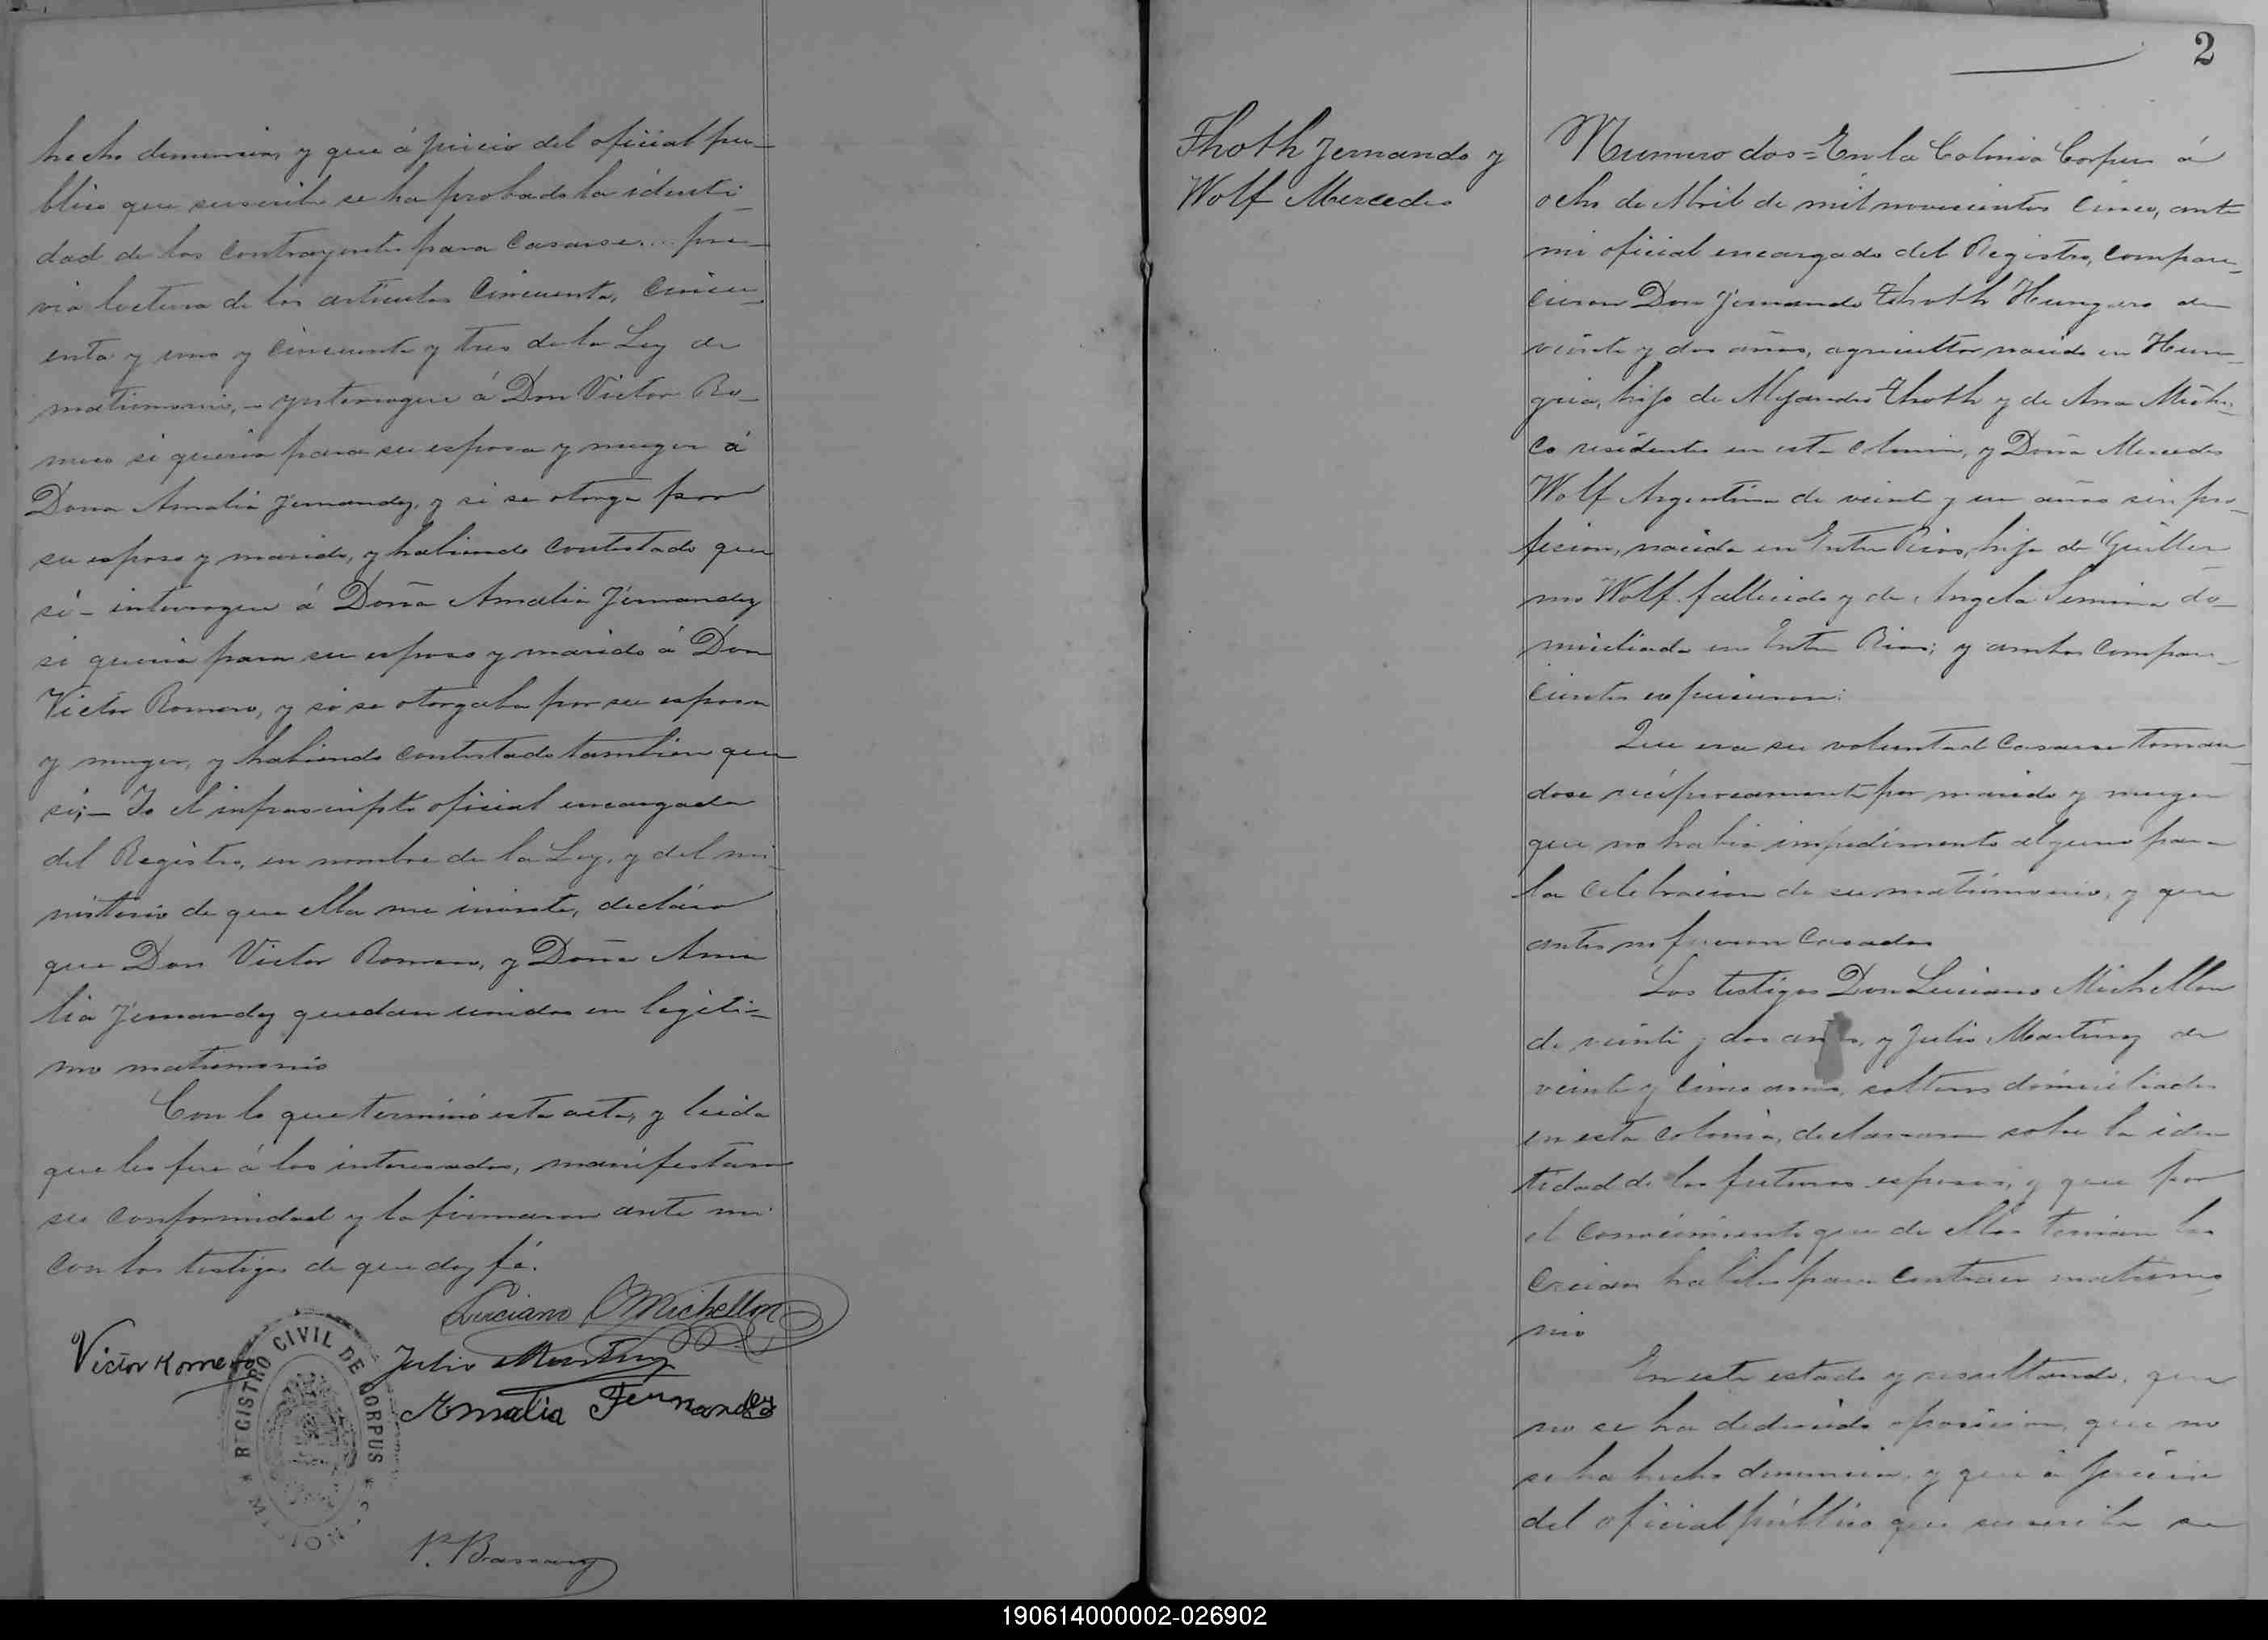 hecho denuncia, y que á juicio del oficial pu-
blico que suscribe se ha probado la identi-
dad de los contrayentes para casarse... pre-
via lectura de los articulos cincuenta, cincu-
enta y uno y cincuenta y tres de la Ley de
matrimonio, - ynterrogue á Don Victor Ro-
mero si queria para su esposa y muger á
Dona Amalia Fernandez, y si se otorga por
su esposo y marido, y habiendo contestado que
si - interrogue á Doña Amalia Fernandez
si queria para su esposo y marido á Don
Victor Romero, y si se otorgaba por su esposa
y muger, y habiendo contestado tambien que
si; - Yo el infrascripto oficial encargado
del Registro, en nombre de la Ley, y del mi-
nisterio de que ella me inviste, decláro
que Don Victor Romero, y Doña Ama
lia Fernandez quedan unidos en legiti-
mo matrimonio
Con lo que terminó esta acta, y leida
que les fue á los interesados, manifestaron
su conformidad y la firmaron ante mi
con los testigos de que doy fé.
Luciano Michellon
Victor Romero
Julio Martinez
Amalia Fernandez
REGISTRO CIVIL DE CORPUS
* MISIONES *
2
Thoth Fernando y
Wolf Mercedes
Numero dos = En la Colonia Corpus á
ocho de Abril de mil novecientos cinco, ante
mi oficial encargado del Registro, compare-
cieron Don Fernando Thoth Hungaro de
veinte y dos años, agricultor nacido en Hun-
gria, hijo de Alejandro Thoth y de Ana
co residentes en esta colonia, y Doña Mercedes
Wolf Argentina de veinte y un años sin pro-
fesion, nacida en Entre Rios, hija de Guiller
mo Wolf fallecido y de Angela do-
miciliada en Entre Rios; y ambos compare-
cientes expusieron:
Que era su voluntad casarse toman-
dose reciprocamente por marido y muger
que no habia impedimento alguno para
la celebracion de su matrimonio, y que
antes no fueron casados
Los testigos Don Luciano Michellon
de veinte y dos años, y Julio Martinez de
veinte y cinco anos, solteros domiciliados
en esta colonia, declararon sobre la iden
tidad de los futuros esposos, y que por
el conocimiento que de ellos tenian los
creian habiles para contraer matrimo-
nio
En este estado y resultando, que
no se ha deducido oposicion, que no
se ha hecho denuncia, y que á juicio
del oficial público que suscribe se
190614000002-026902